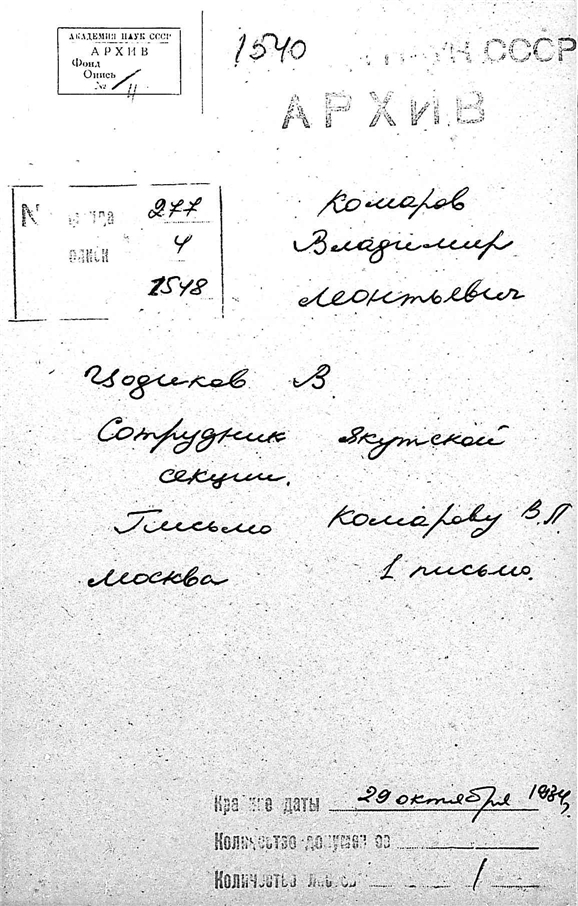 АКАДЕМИЯ НАУК СССР
АРХИВ
Фонд
Опись
№ 4
1540
НАУК СССР
АРХИВ
277
4
1548
Комаров
Владимир
Леонтьевич
В
Сотрудник Якутской
секции.
Письмо Комарову В.Л.
Москва 1 письмо.
Крайние даты 29 октября 1934г.
Количество документов
Количество листов 1